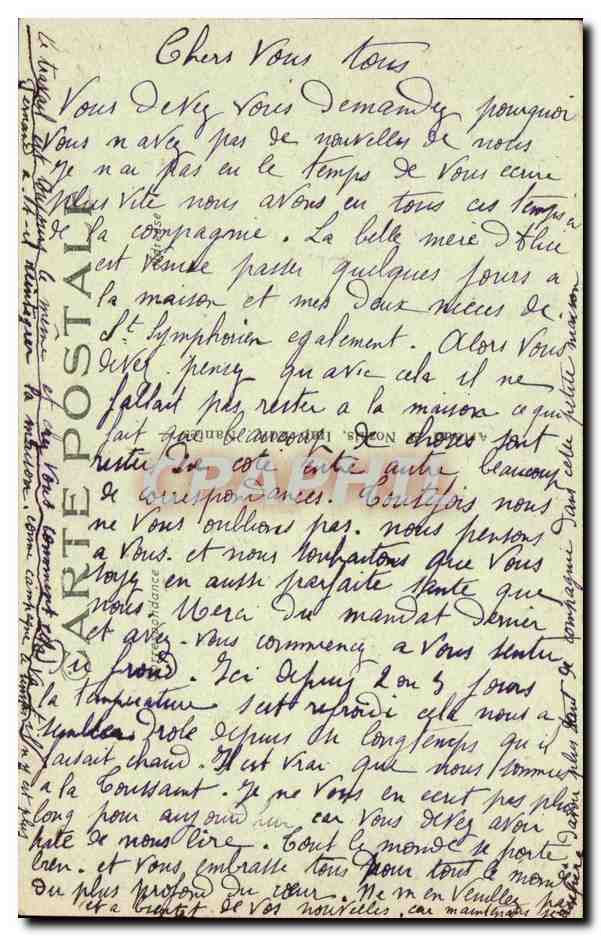 Chers Vous tous
Vous devez vous demandez pourquoi
vous n avez pas de nouvelles de nous
Je n ai pas eu le temps de vous ecrire
plus vite nous avons eu tous ces temps ci
de la compagnie. La belle mere d
est venue passer quelques jours a
la maison et mes deux nieces de
St Symphorien egalement. Alors vous
devez pensez qu avec cela il ne
fallait pas rester a la maison ce qui
fait que de choses sont
restes de cote entre autre beaucoup
de correspondances. Toutefois nous
ne vous oublions pas. nous pensons
a vous. et nous souhaitons que vous
soyez en aussi parfaite sante que
nous Merci du mandat dernier
et avez-vous commencez a vous sentir
du froid. Ici depuis 2 ou 3 jours
la temperature s est refroidi cela nous a
semblee drole depuis si longtemps qu il
faisait chaud. Il est vrai que nous sommes
a la Toussaint. Je ne vous en ecrit pas plus
long pour aujourd hui car vous devez avoir
hate de nous lire. Tout le monde se porte
bien. et vous embrasse tous pour tous le monde
du plus profond du cœur. Ne m en veuillez pas
et a bientot de vos nouvelles, car maintenant
d avoir plus tant de compagnie dans cette petite maison
le travail est toujours le même et chez vous comment cela va t il
Fernand a t il reintegrer la maison. comme campagne a n y est plus
CARTE POSTALE
Correspondance
Adresse
Nozais, Nantes
CRAPHIL